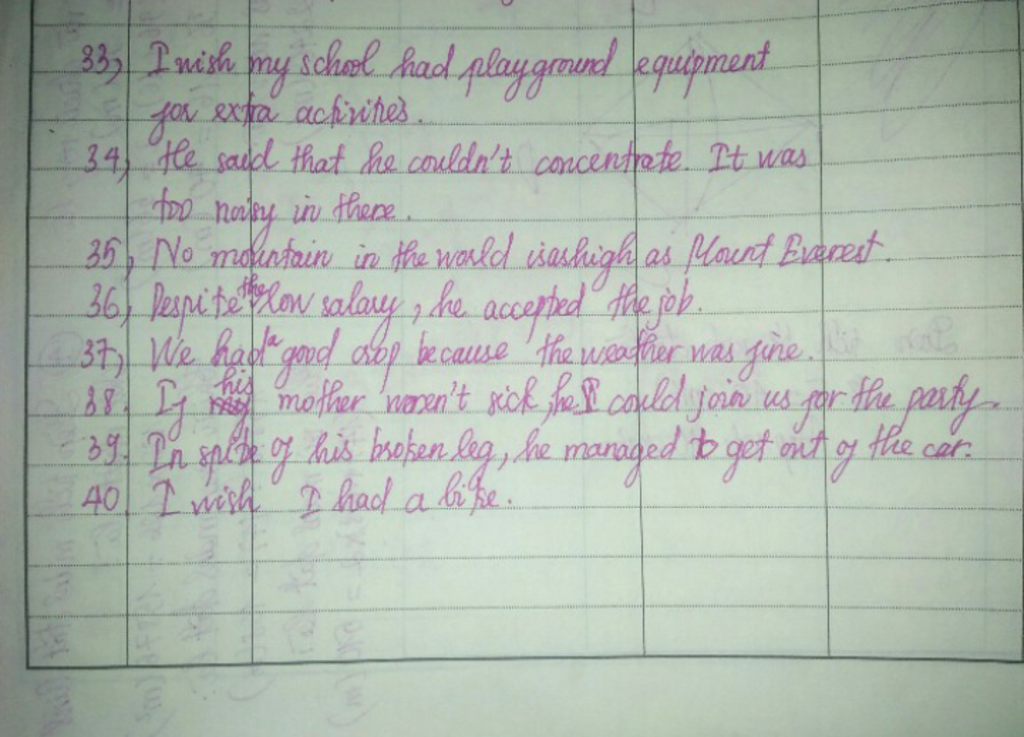 33, I wish my school had playground equipment
for extra activities.
34, He said that he couldn't concentrate. It was
too noisy in there.
35, No mountain in the world is as high as Mount Everest.
36, Despite the low salary, he accepted the job.
37, We had a good crop because the weather was fine.
38. If his mother weren't sick, he could join us for the party.
39. In spite of his broken leg, he managed to get out of the car.
40, I wish I had a bike.